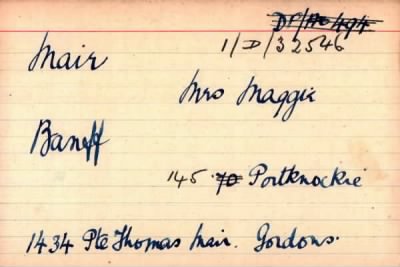 1/D/32546
Mair
Mrs Maggie
Banff
145 70 Portknockie
1434 Pte Thomas Mair. Gordons.